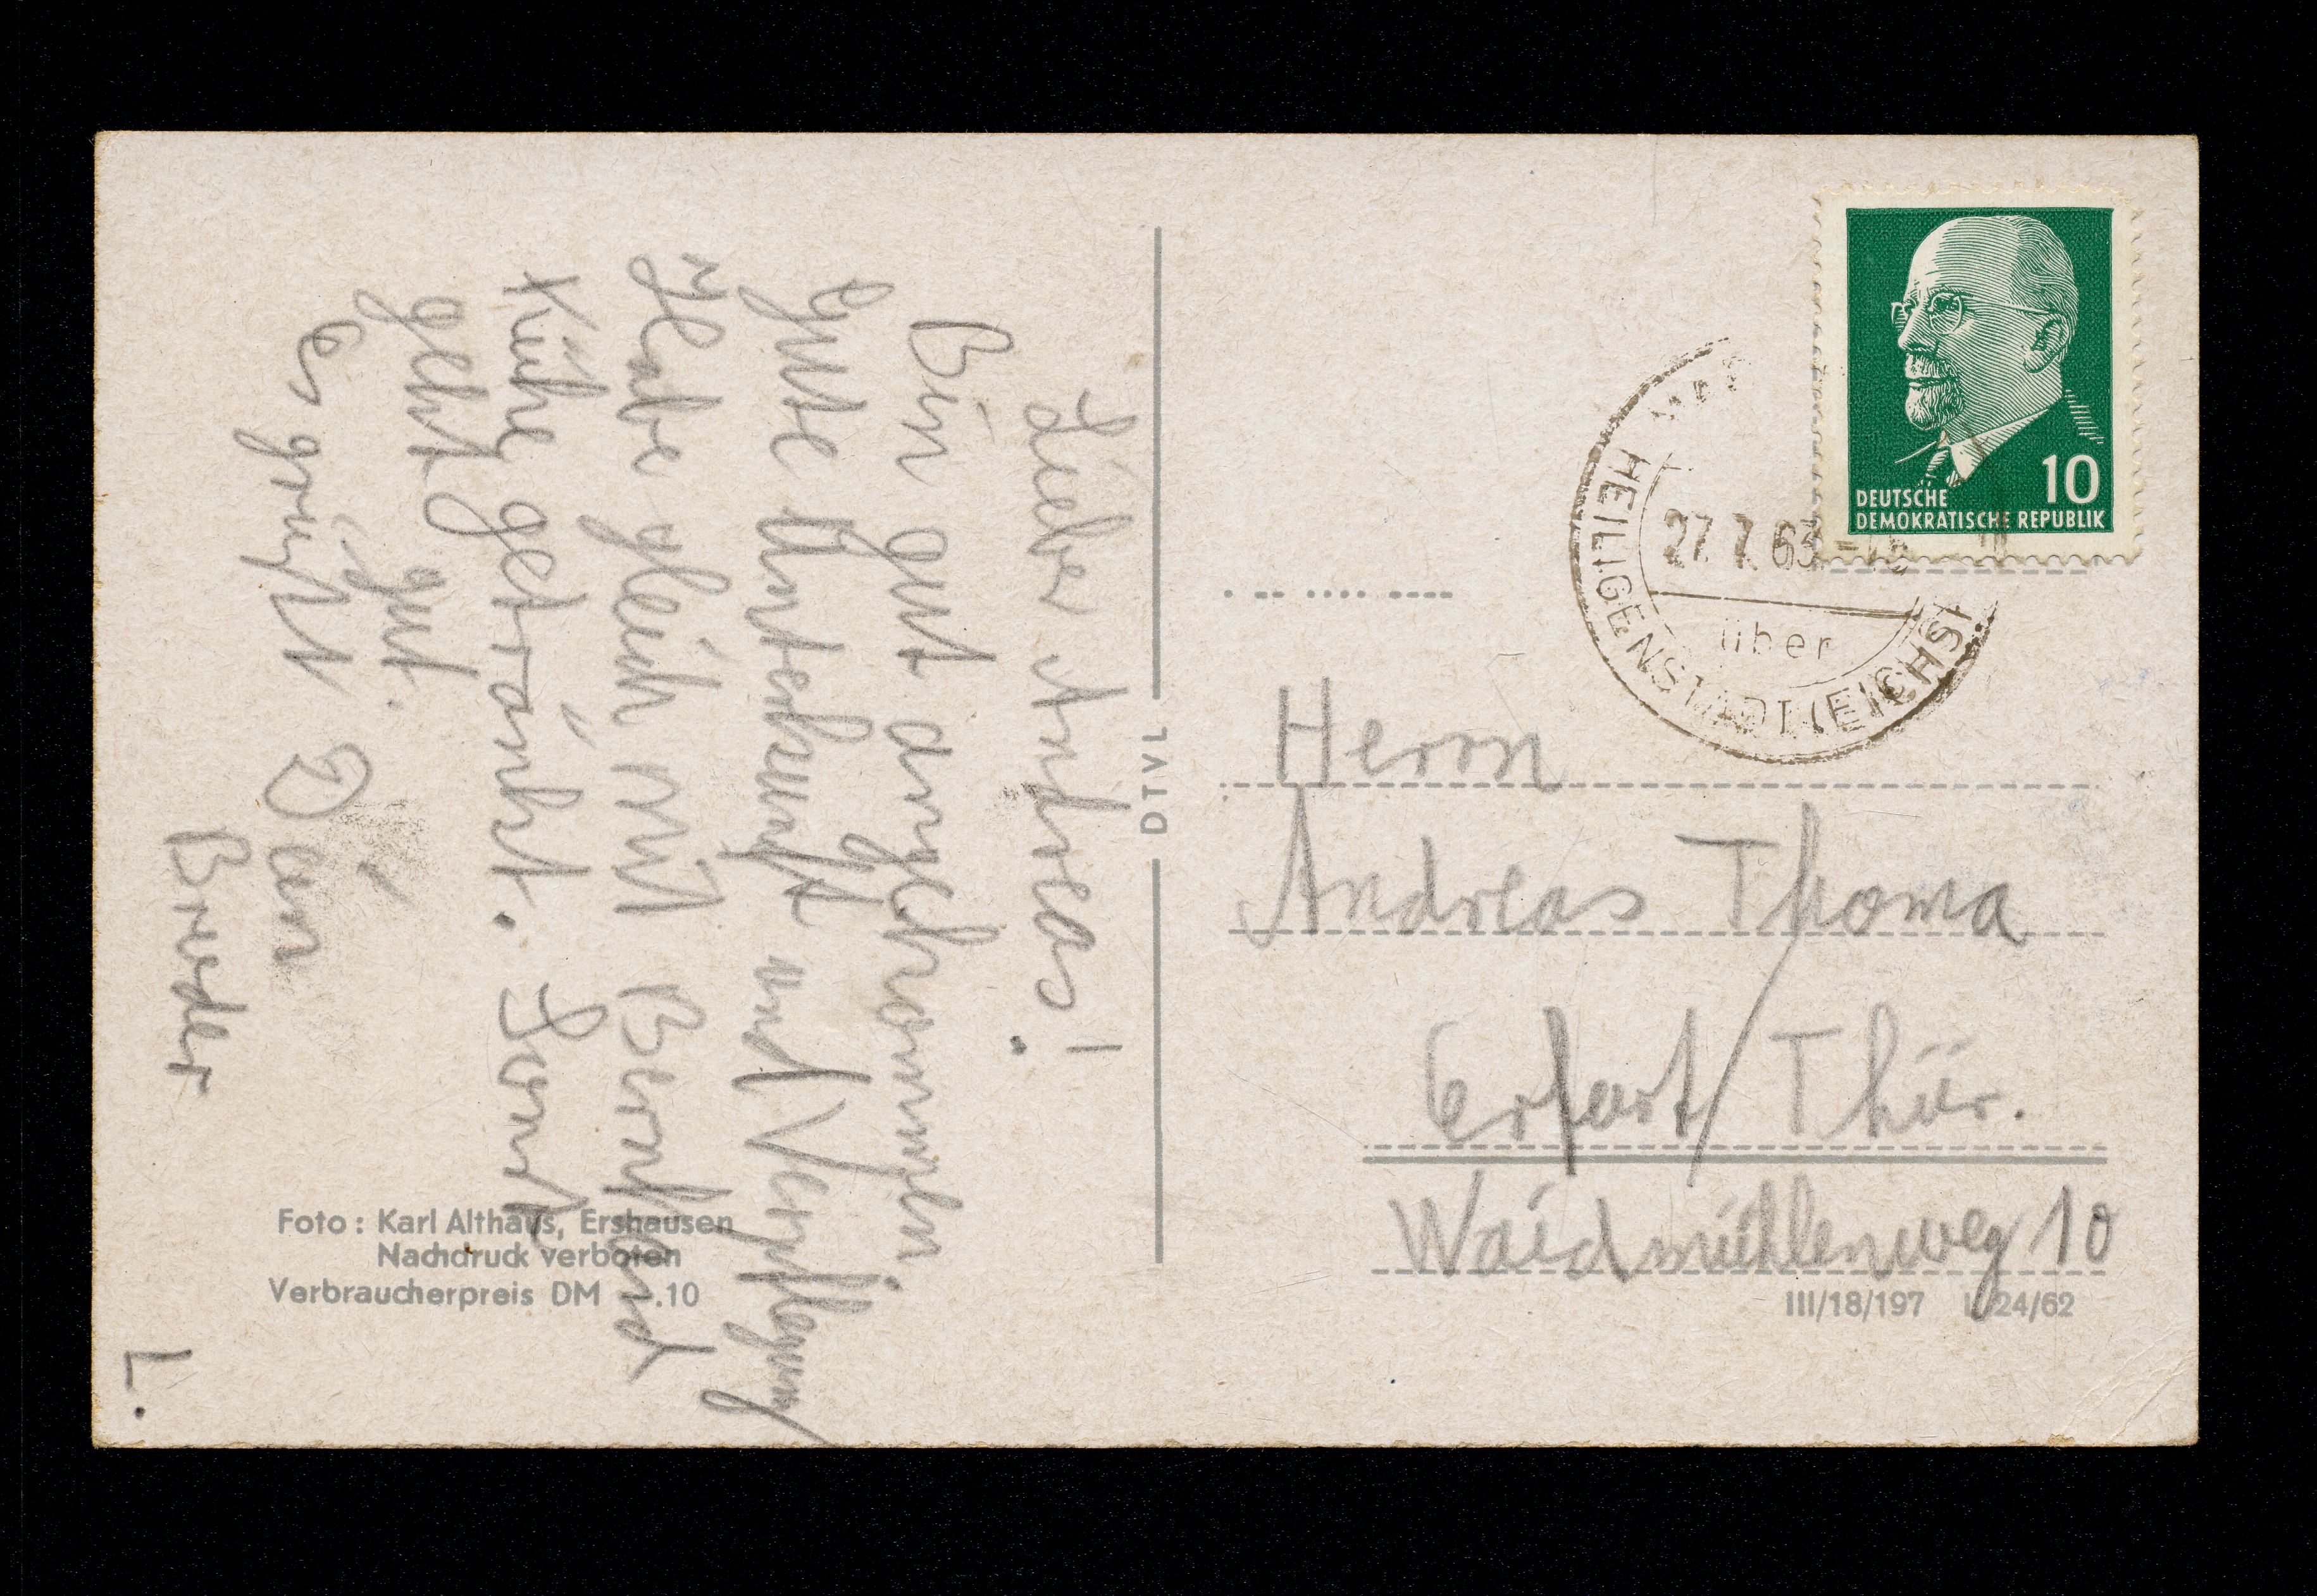 Lieber Andreas!
Bin gut angekommen,
gute Unterkunft und Verpflegung
Habe gleich mit Bernhard
Kühe getränkt. Sonst
geht gut.
Es grüßt Dein
Bruder
L.
Foto: Karl Althaus, Ershausen
Nachdruck verboten
Verbraucherpreis DM —.10
DTVL
10
DEUTSCHE
DEMOKRATISCHE REPUBLIK
27.7.63
über
HEILIGENSTADT (EICHSF
Herrn
Andreas Thoma
Erfurt/Thür.
Waidmühlenweg 10
III/18/197 24/62